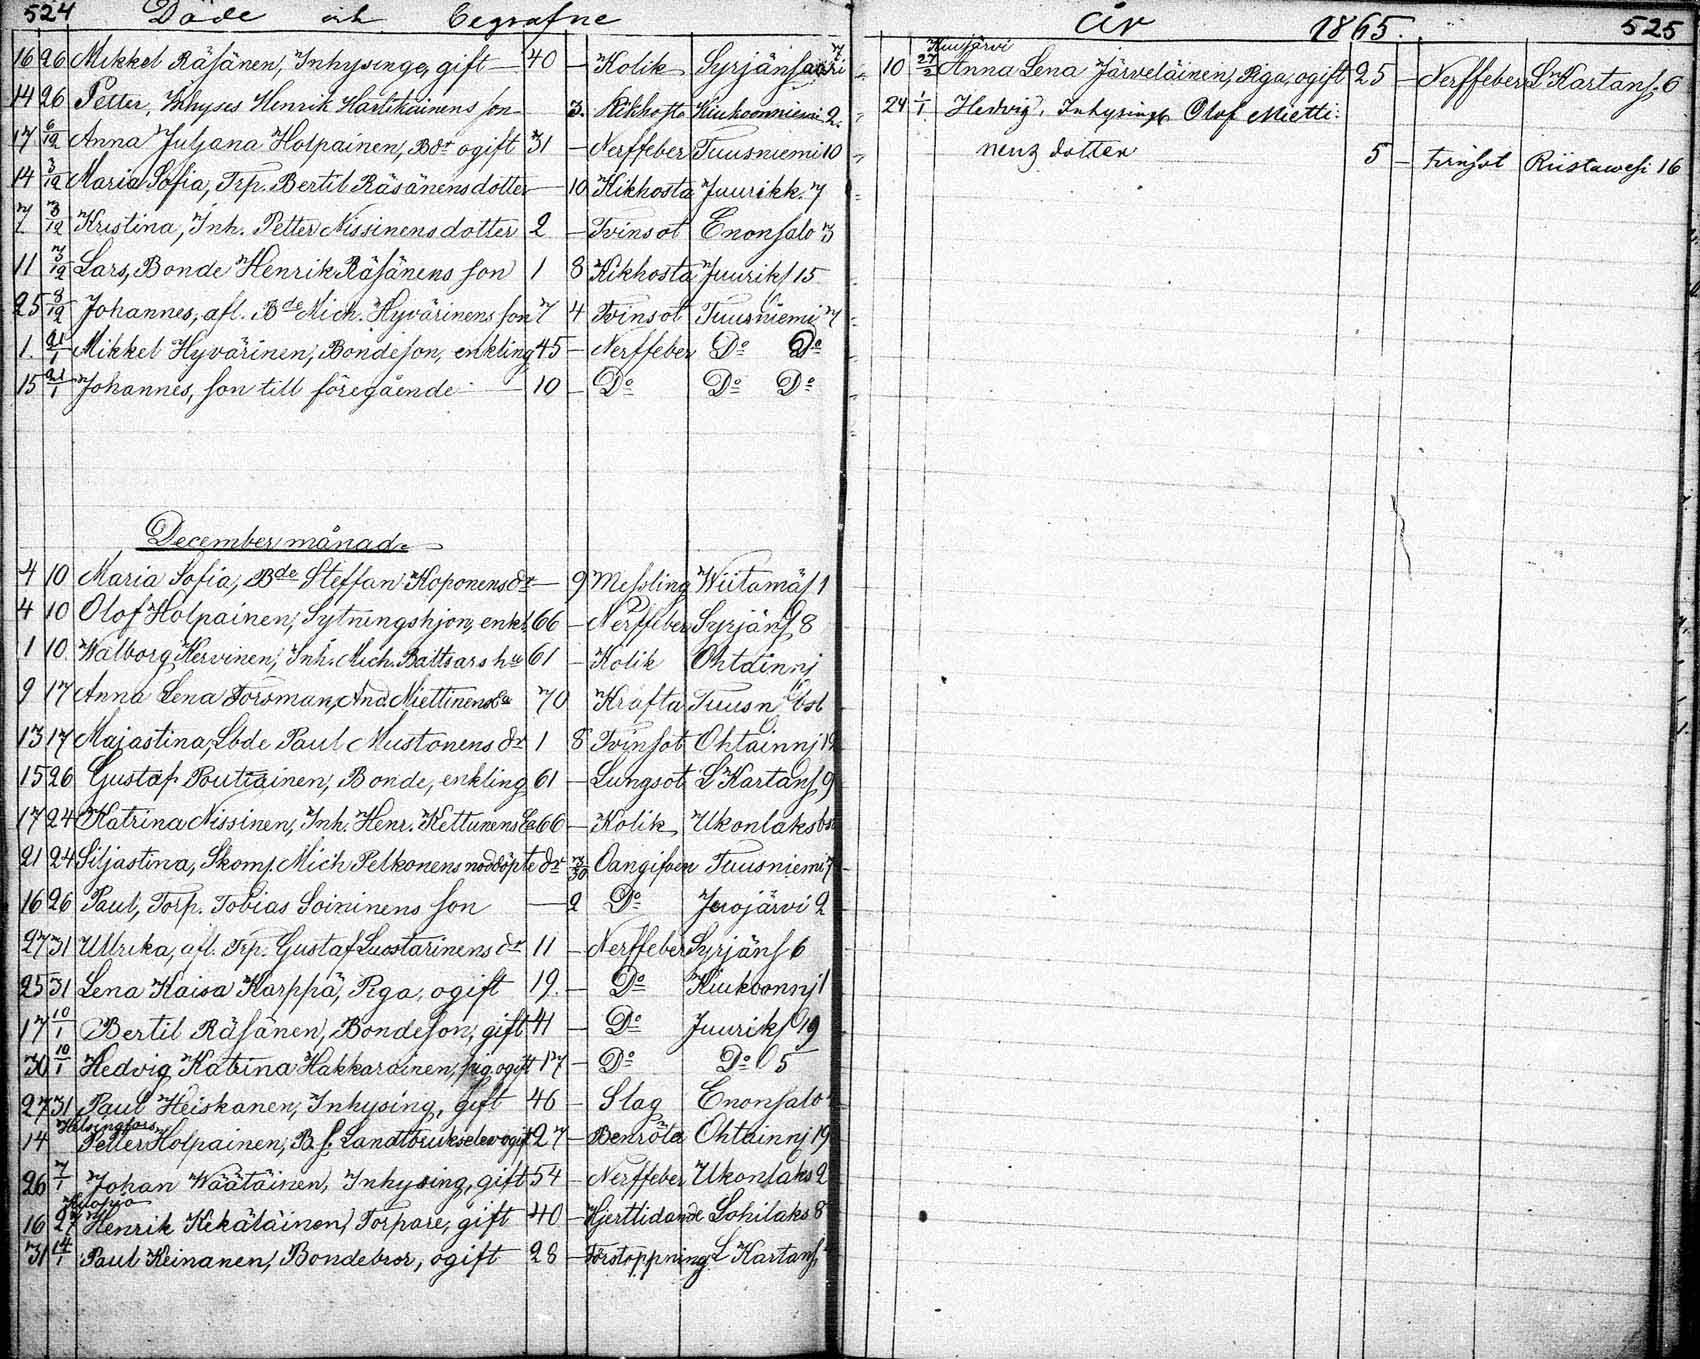 524 Döde och begrafne
16 26 Mikkel Räsänen, Inhysinge, gift 40 – Kolik Syrjänsaari 7
14 26 Petter, Inhyses Henrik Hartikainens son 3. Kikhosta Kiukoonniemi 2.
17 6/12 Anna Juljana Holpainen, Bdr ogift 31 – Nerffeber Tuusniemi 10
14 3/12 Maria Sofia, Trp. Bertil Räsänens dotter – 10 Kikhosta Juurikk. 7
7 3/12 Kristina, Inh. Petter Nissinens dotter 2 – Tvinsot Enonsalo 3
11 3/12 Lars, Bonde Henrik Räsänens son 1 8 Kikhosta Juuriks 15
25 8/12 Johannes, afl. Bde Mich. Hyvärinens son 7 4 Tvinsot Tuusniemi 7
1. 21/1 Mikkel Hyvärinen, Bondeson, enkling 45 – Nerffeber Do Do
15 21/1 Johannes, son till föregående – 10 – Do Do Do
December månad.
4 10 Maria Sofia, Bde Steffan Koponens dr – 9 Messling Wiitamäs 1
4 10 Olof Holpainen, Sytningshjon, enkl. 66 – Nerffeber Syrjäns 8
1 10 Walborg Kervinen, Inh. Mich. Battsars hu 61 – Kolik Ohtainnj
9 17 Anna Lena Forsman, And. Miettinens Ea 70 Kräfta Tuusn bst
13 17 Majastina, Lbde Paul Mustonens dr 1 8 Tvinsot Ohtainnj 19
15 26 Gustaf Poutiainen, Bonde, enkling 61 – Lungsot L Kartans 9
17 24 Katrina Nissinen, Inh. Henr. Kettunens Ea 66 – Kolik Ukonlaks bst
21 24 Siljastina, Skom. Mich Pelkonens nöddöpte dr 7/30 Oangifven Tuusniemi 7
16 26 Paul, Torp. Tobias Soininens son – 2 Do Juojärvi 2
27 31 Ullrika, afl. Trp. Gustaf Luostarinens dr 11 – Nerffeber Syrjäns 6
25 31 Lena Kaisa Karppä, Piga, ogift 19. – Do Kiukoonnj 1
17 10/1 Bertil Räsänen, Bondeson, gift 41 – Do Juuriks 19
30 10/1 Hedvig Katrina Hakkarainen, pig. ogift 17 – Do Do 5
27 31 Paul Heiskanen, Inhysing, gift 46 – Slag Enonsalo
Helsingfors
14 Petter Holpainen, B. s. Landtbrukselev ogift 27 – Benröta Ohtainnj 19
26 7/1 Johan Wäätäinen, Inhysing, gift 54 – Nerffeber Ukonlaks 2
Kuopio
16 27 Henrik Kekäläinen, Torpare, gift 40 – Hjertlidande Lohilaks 8
31 14/1 Paul Keinanen, Bondebror, ogift 28 – Förstoppning L Kartans
År 1865. 525
Kuusjärvi
10 27/2 Anna Lena Järveläinen, Piga, ogift 25 – Nerffeber L Kartans. 6
24 1/1 Hedvig, Inhysings Olof Mietti-
nens dotter 5 – Tvinsot Riistawesi 16